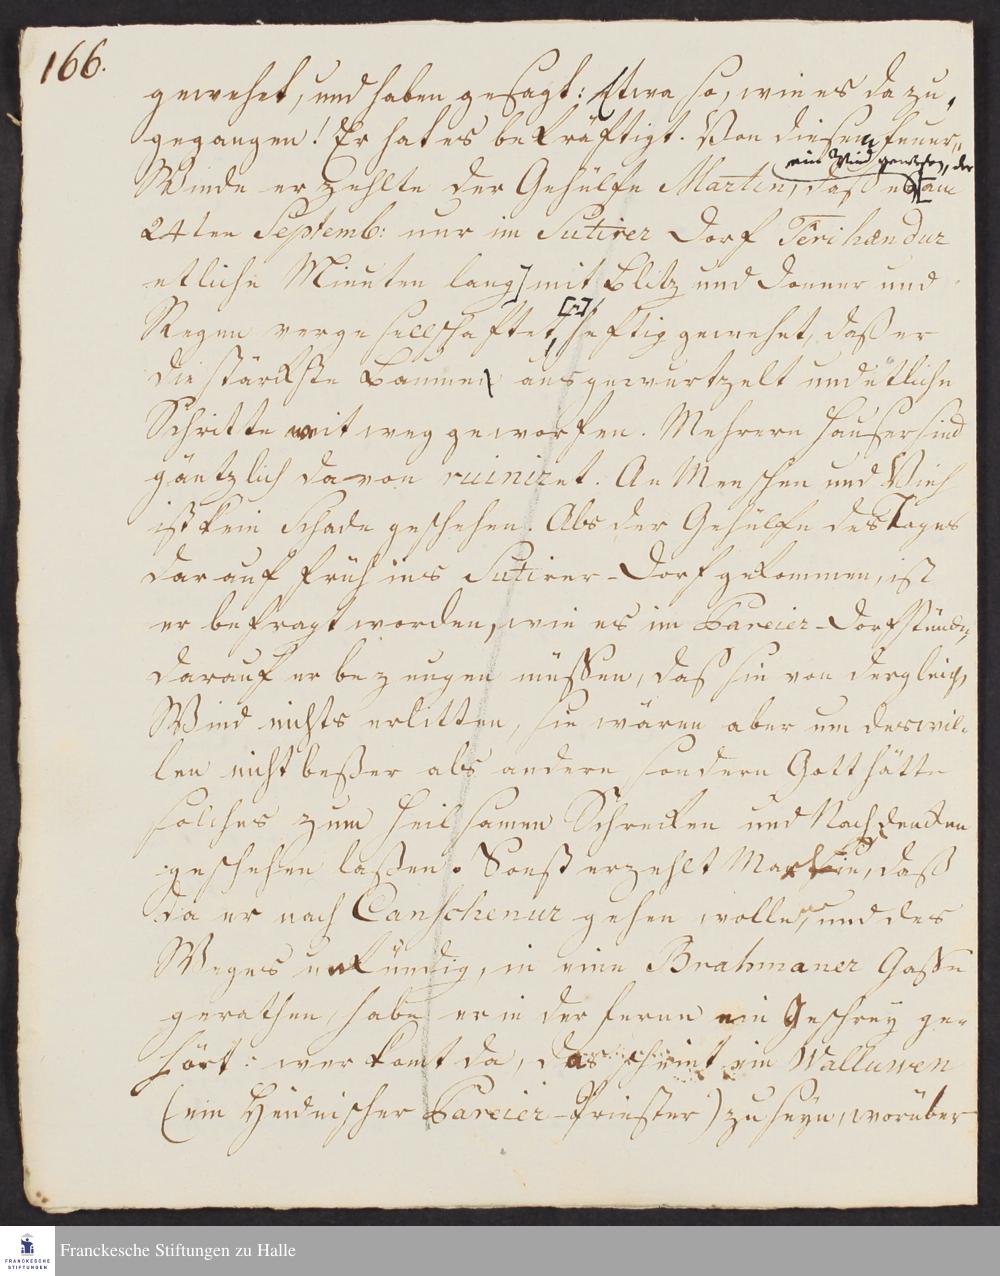 166.
gewehet, und haben gesagt: Etwa so, wie es da zu,
gegangen! Er hat es bekräftigt. Von diesem feuer„
ein Wind gewesen, der
Winde erzehlte der Gehülfe Martin, daß es [am
24ten Septemb: nur im Sutirer Dorf Tirihændur
etliche Minuten lang] mit Blitz und Donner und
Regen vergesellschaftet, [2] heftig gewehet, daß er
die stärckste Baume ausgewurtzelt und etliche
Schritte weit weg geworfen. Mehrere Häuser sind
gäntzlich davon ruiniret. An Menschen und Vieh
ist kein Schade geschehen. Als der Gehülfe des Tages
darauf früh ins Sutirer-Dorf gekommen, ist
er befragt worden, wie es im Bareier-Dorf stünde,
darauf er bezeugen müssen, daß sie von dergleich
Wind nichts erlitten, sie wären aber um deswil-
len nicht beßer als andere sondern Gott hätte
solches zum heilsamen Schrecken und Nachdencken
geschehen laßen. Sonst erzehlt Martin, daß
da er nach Canschenur gehen wollen, und des
Weges unkündig, in eine Brahmaner Gaße
gerathen, habe er in der ferne ein Geschrey ge-
hört: wer komt da, das scheint ein Walluwen
(ein Heidnischer Bareier-Priester) zu seyn, worüber
Franckesche Stiftungen zu Halle
FRANCKESCHE
STIFTUNGEN